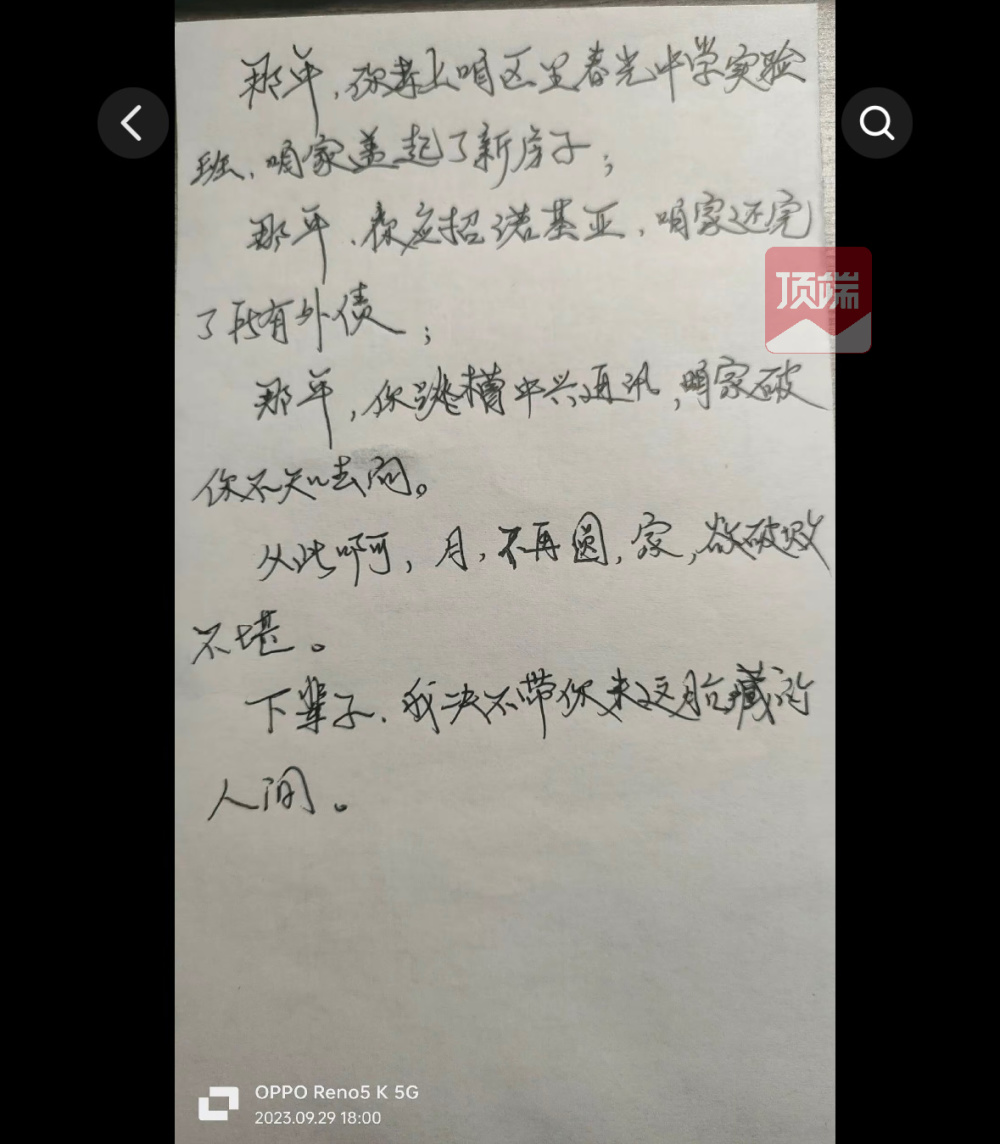 那年，你考上咱区里春光中学实验
班，咱家盖起了新房子；
那年，你应招诺基亚，咱家还完
了所有外债；
那年，你跳槽中兴通讯，咱家破
你不知去向。
从此啊，月，不再圆，家，欲破败
不堪。
下辈子，我决不带你来这肮藏的
人间。
顶端
OPPO Reno5 K 5G
2023.09.29 18:00